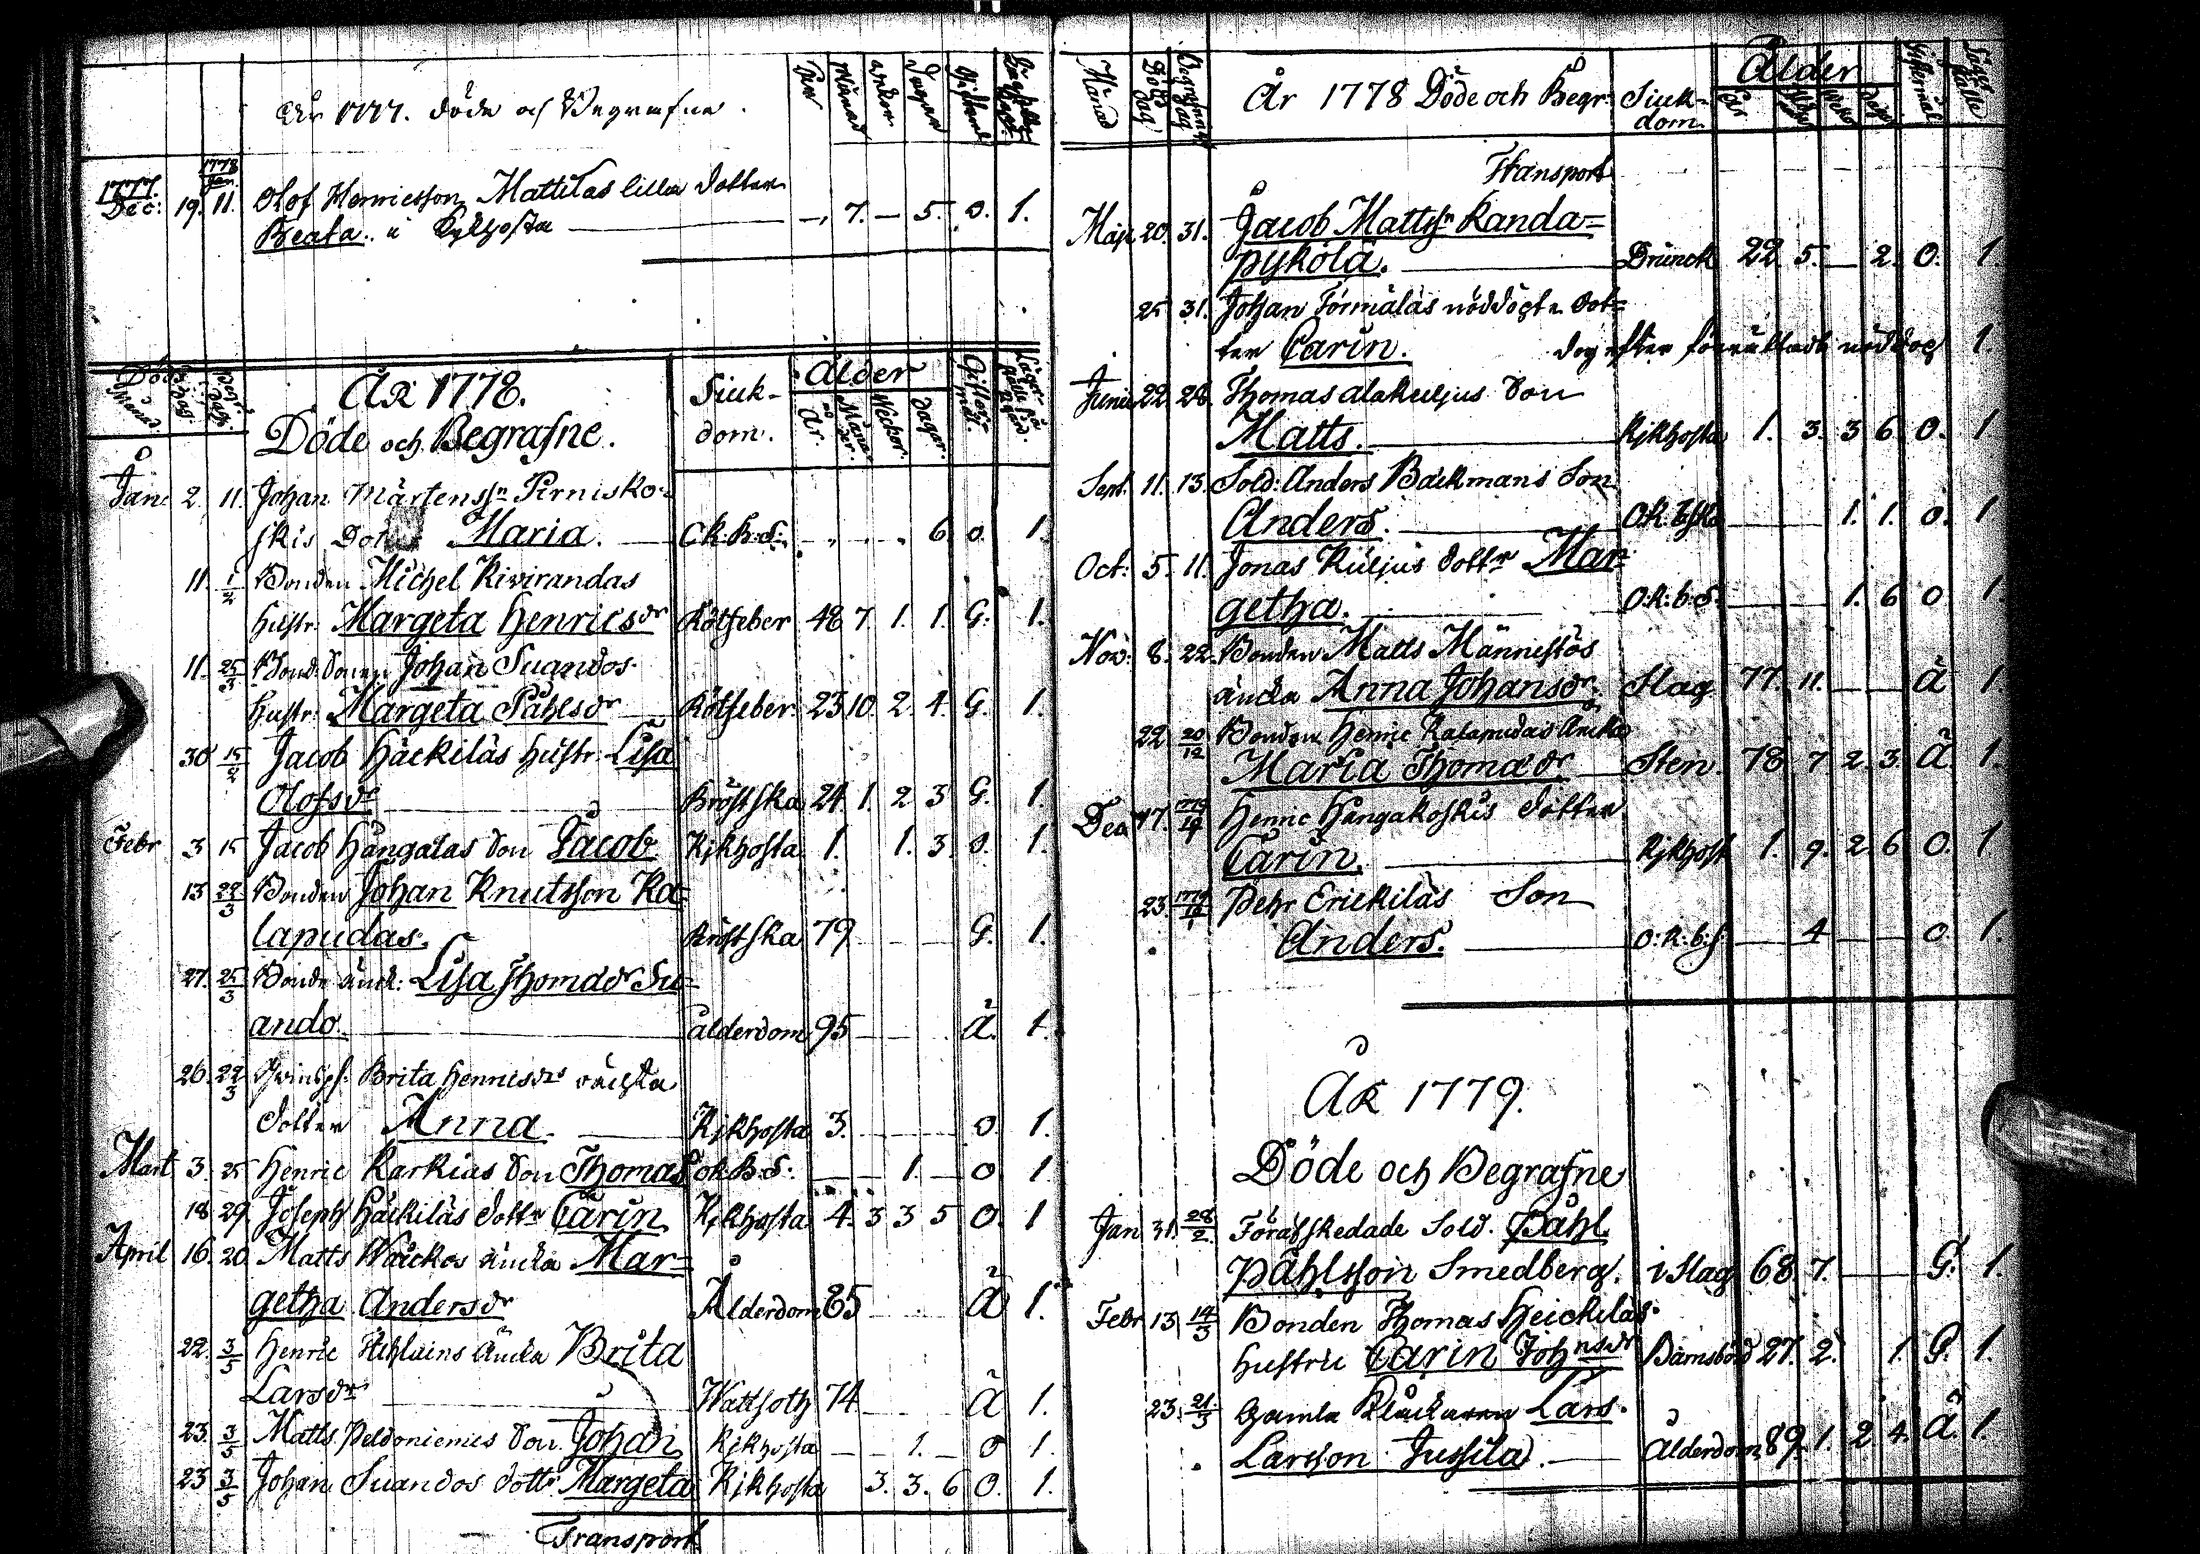 År 1777. döde och Begrafne.
År Månad wekor Dagar
1777. 1778 Jan.
Dec: 19. 11. Olof Henricsson Mattilas lilla dotter
Beata. i Kykhosta — 7. — 5. O. 1.
Död Månad dag Begr. dag
ÅR 1778.
Döde och Begrafne.
Siuk-
dom.
Ålder
År. Månader. Weckor. dagar.
Jan: 2. 11. Johan Mårtenssn Pirnisko-
skis Dot Maria. — Ok. B. S: 6. O. 1.
11. 1/2 Bonden Michel Kivirandas
hustr. Margeta Henricsdr Rötfeber 48 7. 1. 1. G. 1.
11. 25/3 Bond. Sonen Johan Suandos
hustr. Margeta Påhlsdr Rötfeber 23 10. 2. 4. G. 1.
30 15/2 Jacob Häckiläs hustr. Lisa
Olofsdr Bröstska 24. 1. 2 3 G. 1.
Febr 3 15 Jacob Hångalas son Jacob Kikhosta 1. 1. 3. O. 1.
13 22/3 Bonden Johan Knutsson Ka-
lapudas. Bröstska 79 G. 1.
27. 25/3 Bonde änck. Lisa Thomadr Su-
ando. — ålderdom 95 Ä. 1.
26. 22/3 Brita Henricsdrs
dotter Anna. — Kikhosta 3. O. 1.
Mart 3. 25 Henric Karkias son Thomas ok. B. S: — 1. — O 1.
18 29 Joseph Häckiläs dottr Carin Kikhosta 4. 3 3 5 O. 1
April 16. 20 Matts Waickos äncka Mar-
getha Andersdr Ålderdom 85 Ä 1.
22. 3/5 Henric äncka Brita
Larsdr Wattsoth 74 Ä 1.
23. 3/5 Matts Peldoniemis son Johan Kikhosta — 1. — O 1.
23 3/5 Johan Suandos dottr Margeta Kikhosta 3. 3. 6 O. 1.
Transport
Månad Döds dag Begrafnings dag
År 1778 Döde och Begr: Siuk-
dom.
Ålder
År
Giftermål
Transport
Maji 20. 31. Jacob Mattssn Randa-
pykölä. — Drunck 22 5. — 2. O. 1.
25 31. Johan Törmäläs nöddöpte dot-
ter Carin. dog efter förrättadt nöddop 1.
Junii 22. 28. Thomas Alakuljus Son
Matts. — Kikhosta 1. 3. 3 6 O. 1
Sept. 11. 13. Sold: Anders Backmans Son
Anders. — 1. 1. O. 1
Oct: 5. 11. Jonas Kuljus dottr Mar-
getha. — O: K: b: S. 1. 6 O 1.
Nov: 8. 22. Bonden Matts Männistös
äncka Anna Johansdr. Slag 77. 11. — Ä 1.
22. 20/12 Bonden Henric Kalapudas äncka
Maria Thomædr Sten 78 7 2. 3. Ä. 1.
Dec 17. 1779 Henric Hångakoskis dotter
Carin. — Kikhost 1. 9. 2 6 O. 1.
23. 1779 Pehr Erickiläs Son
Anders. — O: K: b: s. — 4 — O 1.
ÅR 1779.
Döde och Begrafne
Jan 31. 28/2 Förafskedade Sold. Påhl
Påhlsson Smedberg. i Slag 68. 7. — G. 1.
Febr 13. 14/3 Bonden Thomas Heickiläs
hustru Carin Johnsdr Barnsbörd 27. 2. 1. G. 1.
23. 21/3 Gamla Klåckaren Lars
Larsson Jussila. — Ålderdom 89. 1. 2. 4. Ä. 1.